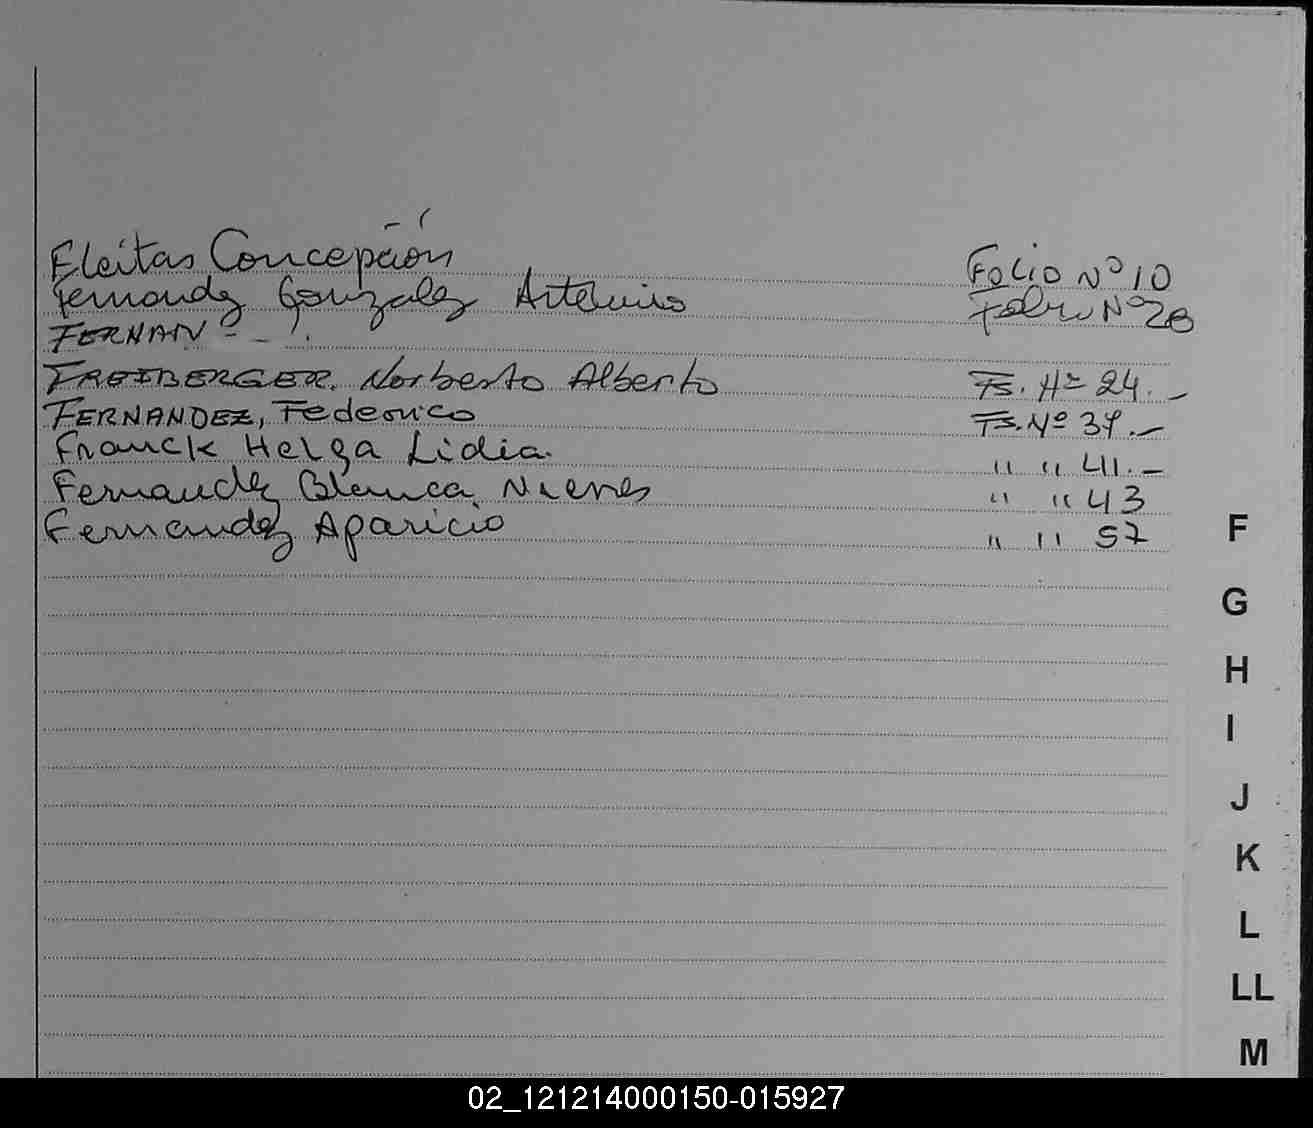 Fleitas Concepción Folio Nº 10
Fernandez Gonzalez Artemio Folio Nº 28
FERNAN
FREIBERGER. Norberto Alberto Fs. Nº 24.-
FERNANDEZ, Federico Fs. Nº 34.-
Franck Helga Lidia. " " 41.-
Fernandez Blanca Nieves " " 43
Fernandez Aparicio " " 57
F
G
H
I
J
K
L
LL
M
02_121214000150-015927